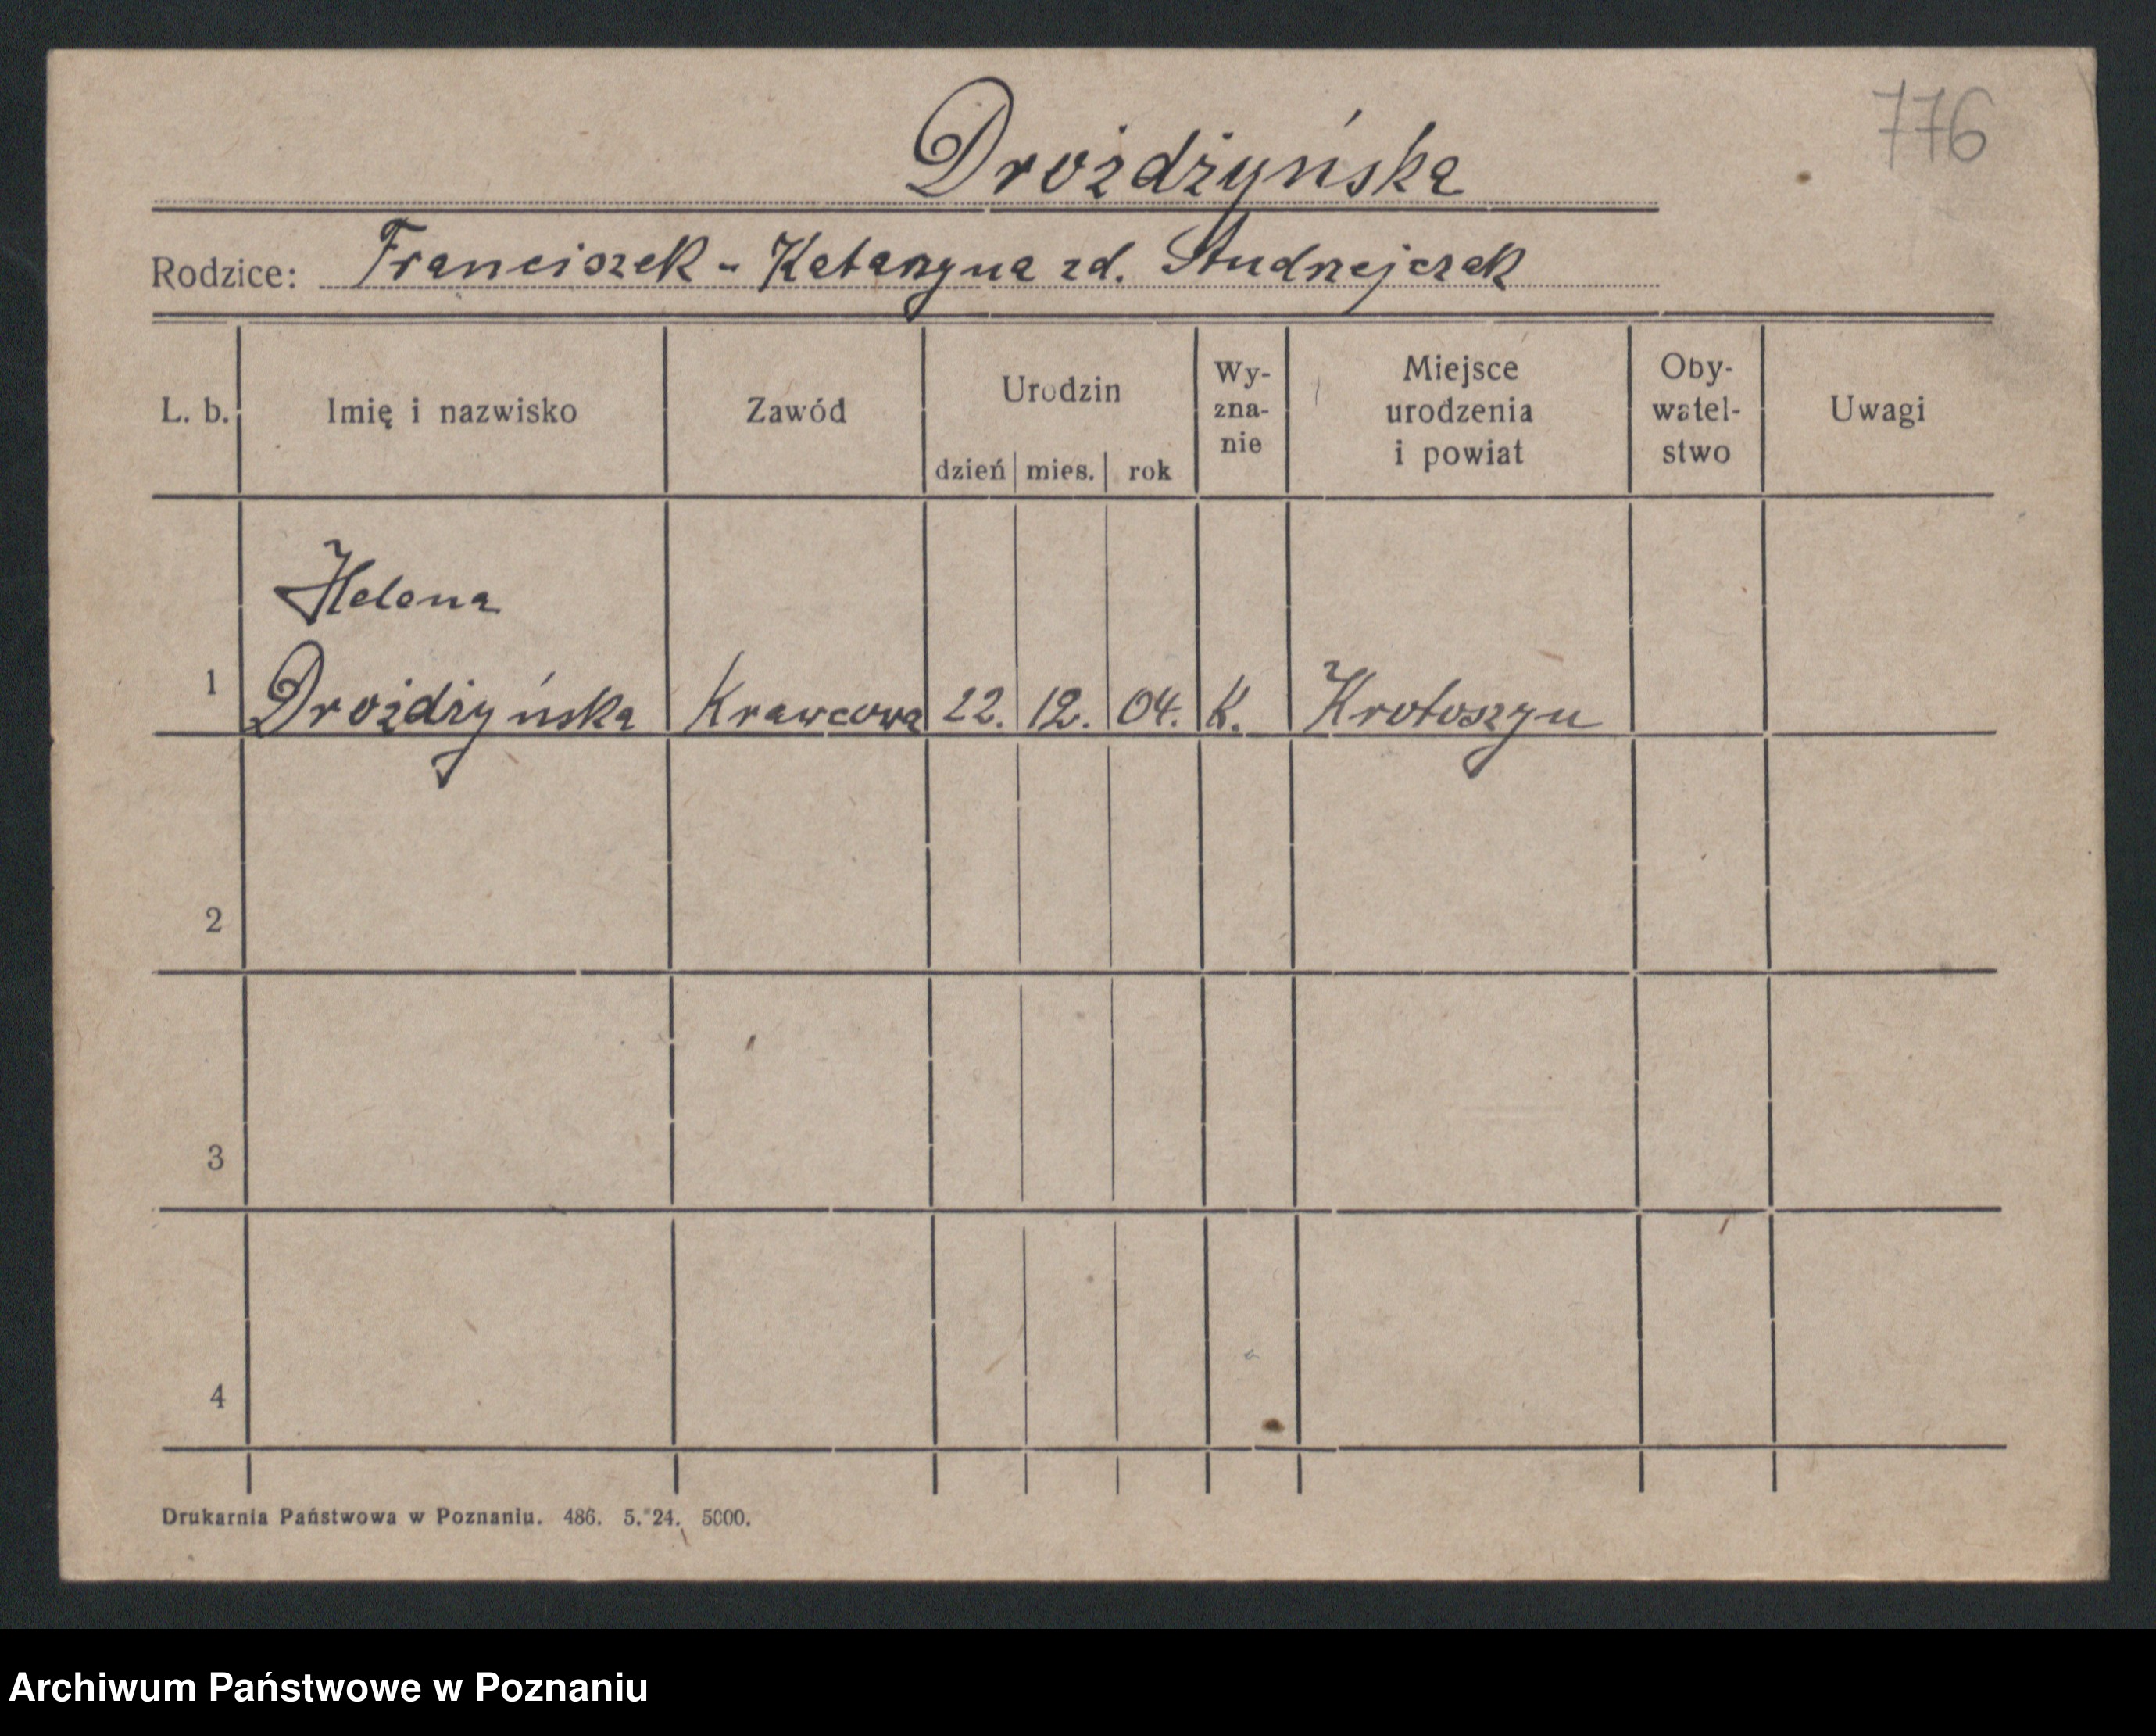 776
Drożdżyńska
Rodzice: Franciszek - Katarzyna zd. Andrzejczak
L. b. Imię i nazwisko Zawód Urodzin dzień mies. rok Wy-zna-nie Miejsce urodzenia i powiat Oby-watel-stwo Uwagi
Helena
1 Drożdżyńska Krawcowa 22. 12. 04. K. Krotoszyn
2
3
4
Drukarnia Państwowa w Poznaniu. 486. 5. 24. 5000.
Archiwum Państwowe w Poznaniu